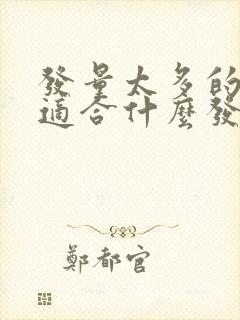 發量太多的
適合什麼發
鄭都官